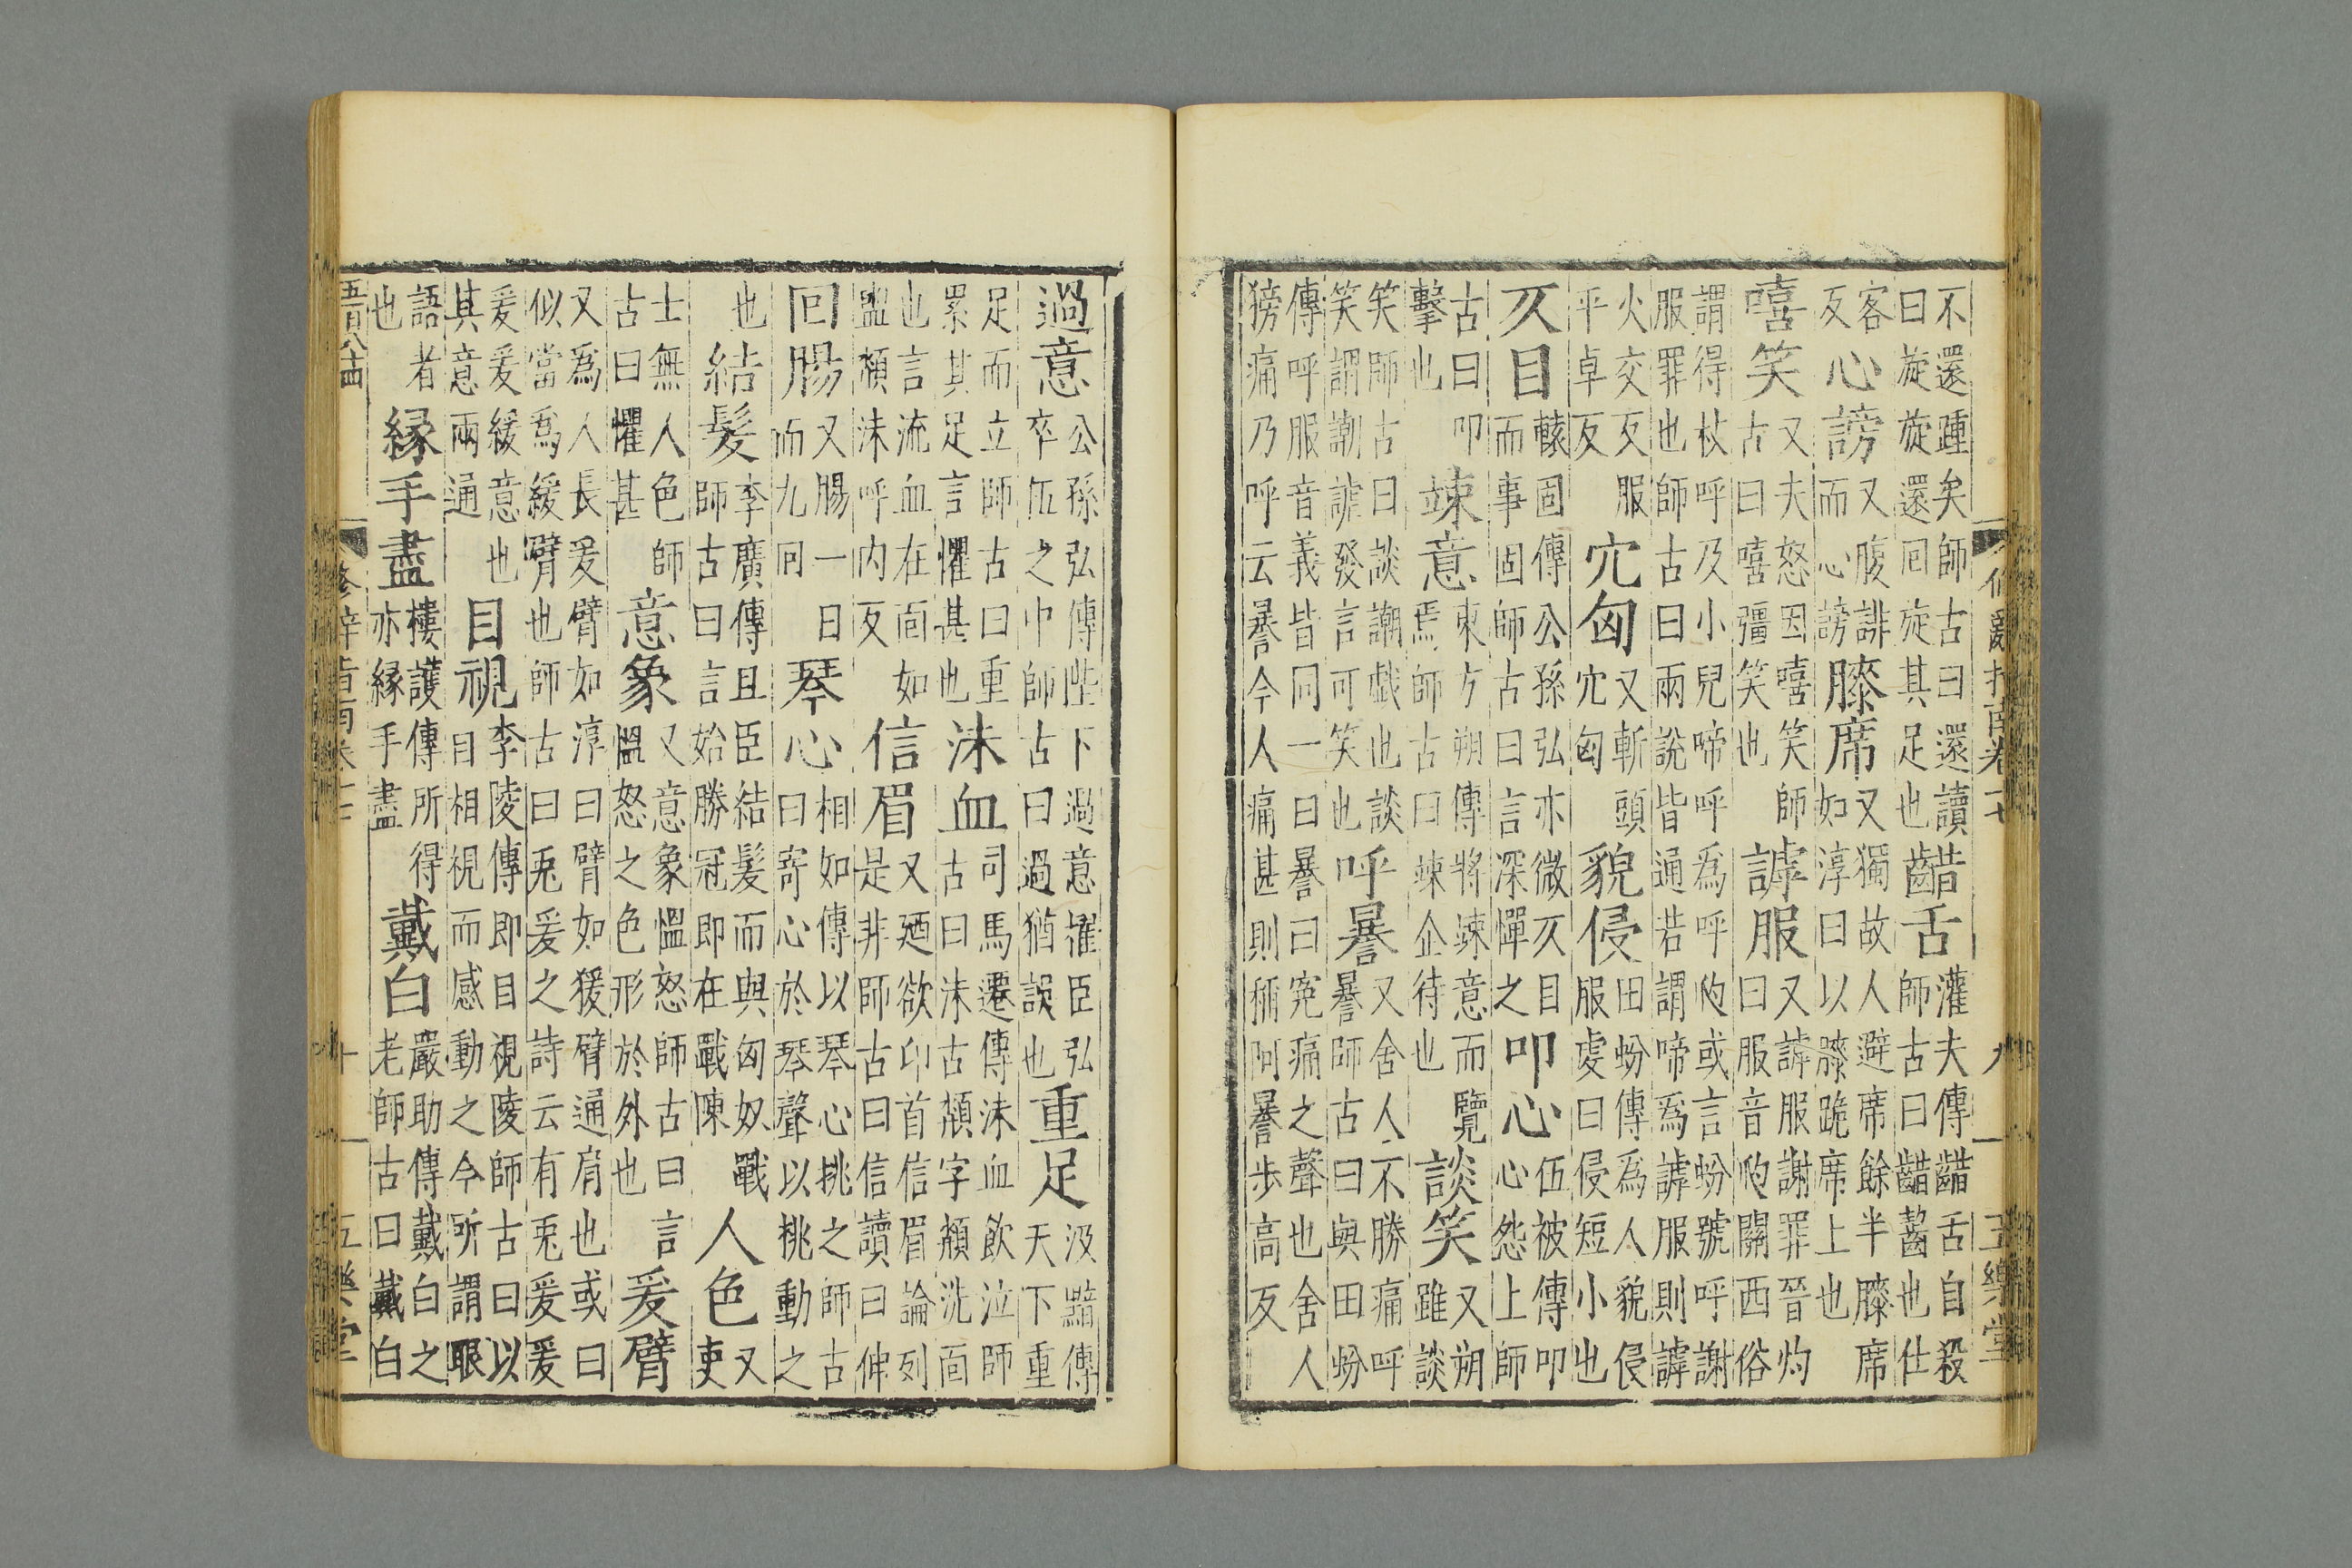 修辭指南卷十七 九 五樂堂
不還踵矣師古曰還讀曰旋旋還囘旋其足也齰舌灌夫傳齰舌自殺師古曰齰齧也仕
客反心謗又腹誹而心謗膝席又獨故人避席餘半膝席如淳曰以膝跪席上也
嘻笑又夫怒因嘻笑師古曰嘻彊笑也謼服又謼服謝罪晉灼曰服音瓟關西俗
謂得杖呼及小兒啼呼為呼瓟或言蚡號呼謝服罪也師古曰兩說皆通若謂啼為謼服則謼
火交反服平卓反穴匈又斬頭穴匈貌侵田蚡傳為人貌侵服虔曰侵短小也
仄目轅固傳公孫弘亦微仄目而事固師古曰言深憚之叩心伍被傳叩心怨上師
古曰叩擊也竦意東方朔傳將竦意而覽焉師古曰竦企待也談笑又朔雖談
笑師古曰談謿戯也談笑謂謿誹發言可笑也呼謈又舍人不勝痛呼謈師古曰與田蚡
傳呼服音義皆同一曰謈曰寃痛之聲也舍人痛乃呼云謈今人痛甚則稱阿謈步高反
過意公孫弘傳陛下過意擢臣弘卒伍之中師古曰過猶誤也重足汲黯傳天下重
足而立師古曰重累其足言懼甚也沬血司馬遷傳沬血飲泣師古曰沬古頮字頮洗面
也言流血在面如盥頮沬呼内反信眉又廼欲卬首信眉論列是非師古曰信讀曰伸
回腸又腸一日而九回琴心相如傳以琴心挑之師古曰寄心於琴聲以挑動之
也結髮李廣傳且臣結髮而與匈奴戰師古曰言始勝冠即在戰陳人色又吏
士無人色師古曰懼甚意象又意象慍怒師古曰言慍怒之色形於外也爰臂
又為人長爰臂如淳曰臂如猨臂通肩也或曰似當為緩臂也師古曰兎爰之詩云有兎爰爰
爰爰緩意也其意兩通目視李陵傳即目視陵師古曰以目相視而感動之今所謂眼
語者也縁手盡樓護傳所得亦縁手盡戴白嚴助傳戴白之老師古曰戴白
五百八十四 修辭指南卷十七 十 五樂堂